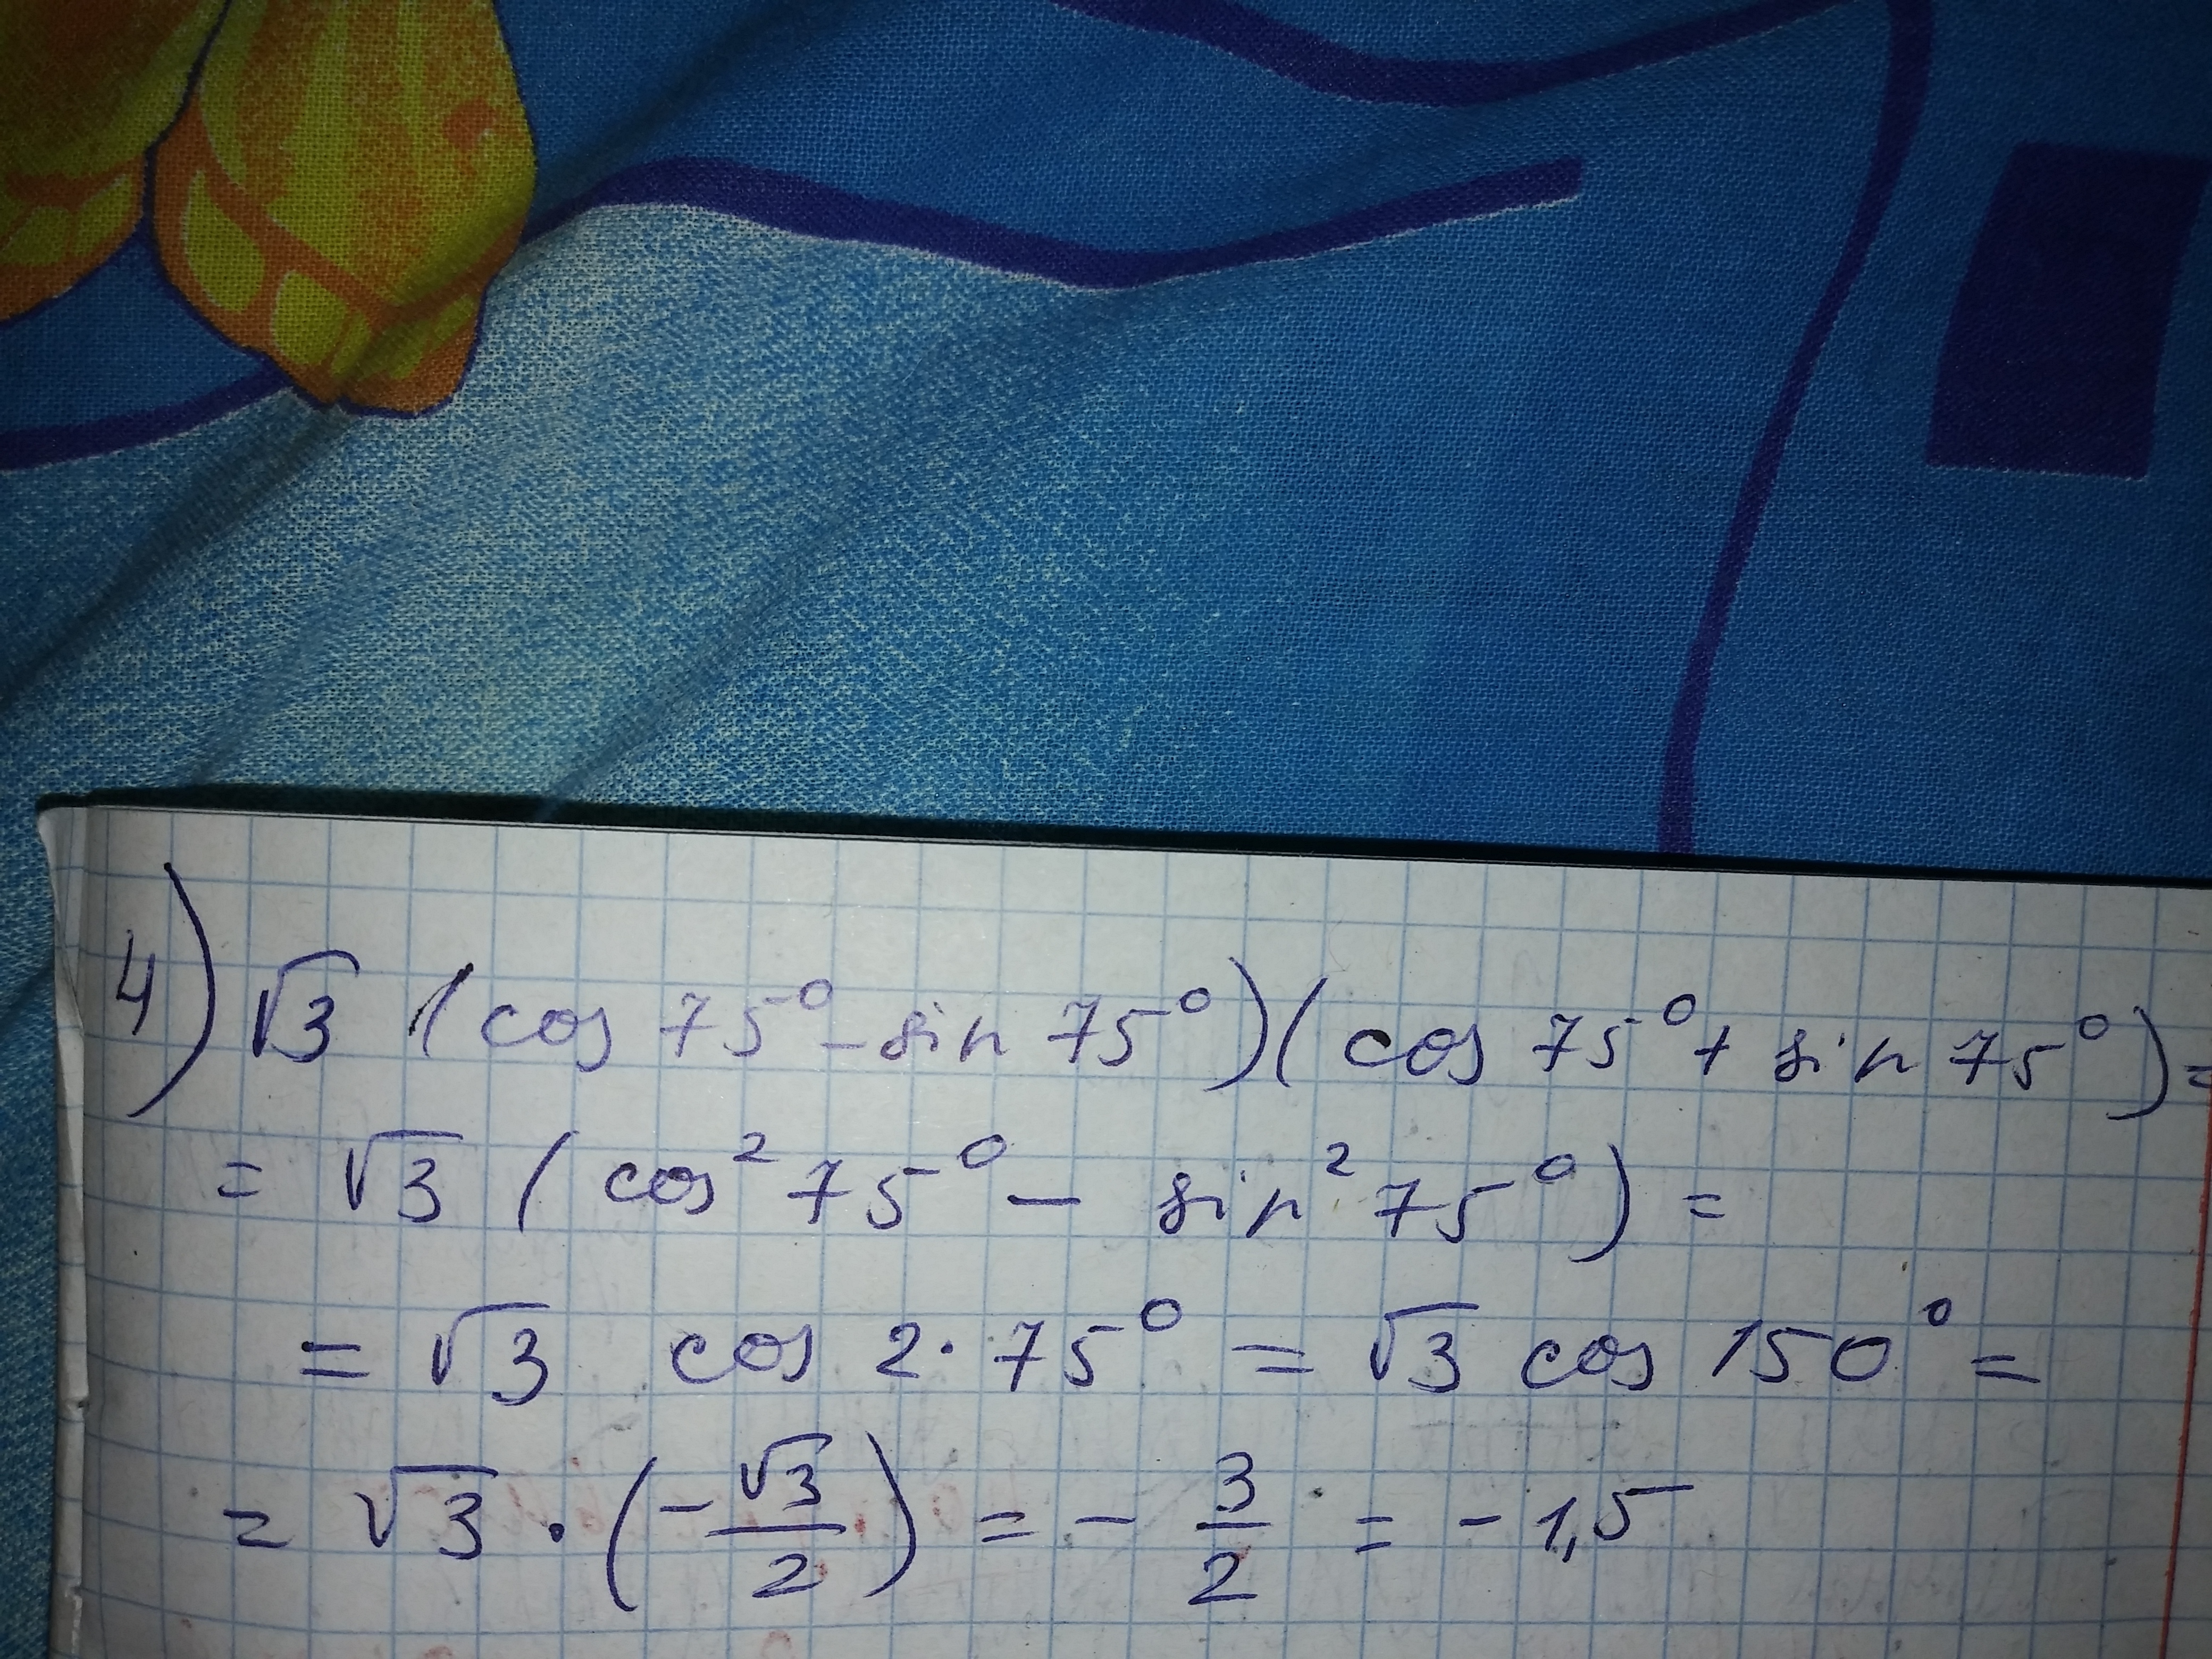 4) √3 (cos 75° - sin 75°)(cos 75° + sin 75°) =
= √3 (cos² 75° - sin² 75°) =
= √3 cos 2·75° = √3 cos 150° =
= √3 · (-√3/2) = - 3/2 = - 1,5